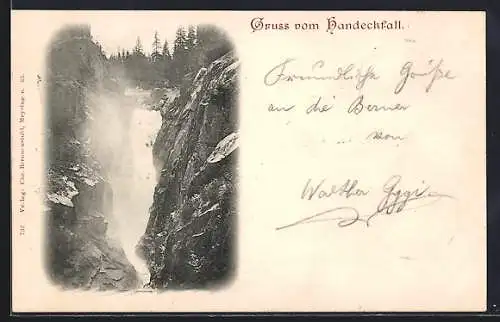 Gruss vom Handeckfall.
Freundliche Grüße
an die Berner
von
Walther Gygi
Verlag: Chr. Brennenstuhl, Meyring u. 83.